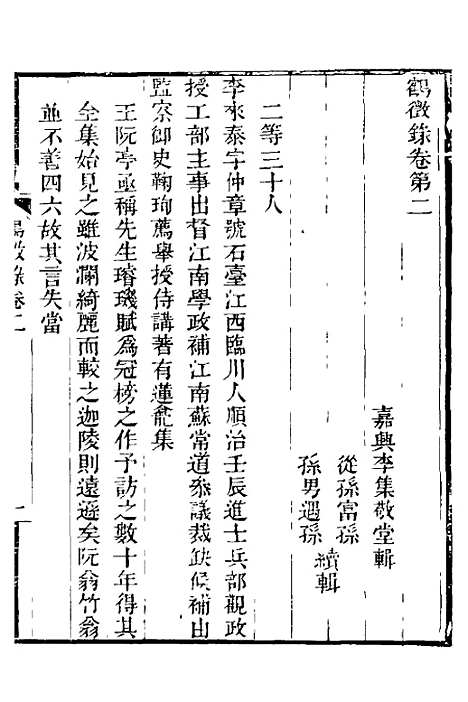 鶴徵錄卷第二
嘉興李集敬堂輯
從孫富孫
孫男遇孫
續輯
二等三十人
李來泰字仲章號石臺江西臨川人順治壬辰進士兵部觀政
授工部主事出督江南學政補江南蘇常道叅議裁缺候補由
監察御史鞠珣薦舉授侍講著有蓮龕集
王阮亭亟稱先生璿璣賦爲冠榜之作予訪之數十年得其
全集始見之雖波瀾綺麗而較之迦陵則遠遜矣阮翁竹翁
並不善四六故其言失當
鶴徵錄卷二
一